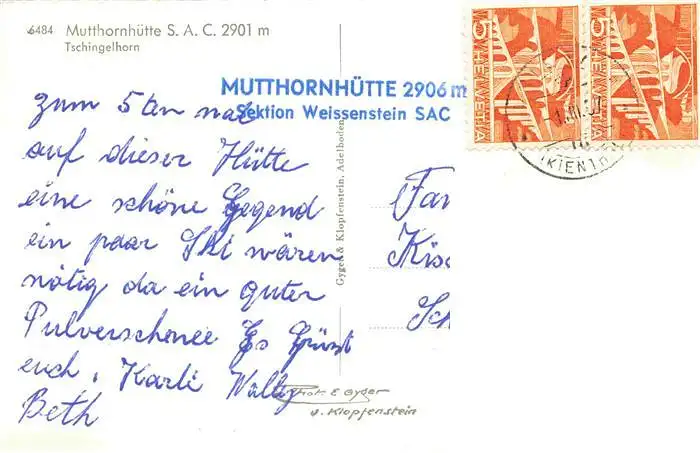 6484 Mutthornhütte S. A. C. 2901 m
Tschingelhorn
MUTTHORNHÜTTE 2906 m
Sektion Weissenstein SAC
zum 5ten mal
auf dieser Hütte
eine schöne Gegend
ein paar Ski wären
nötig da ein guter
Pulverschnee Es Grüsst
euch, Karli Walty
Beth
Gyger & Klopfenstein, Adelboden
Phot. E Gyger
v. Klopfenstein
Fa
Kis
Sch
5 HELVETIA
5 HELVETIA
(KIENTH